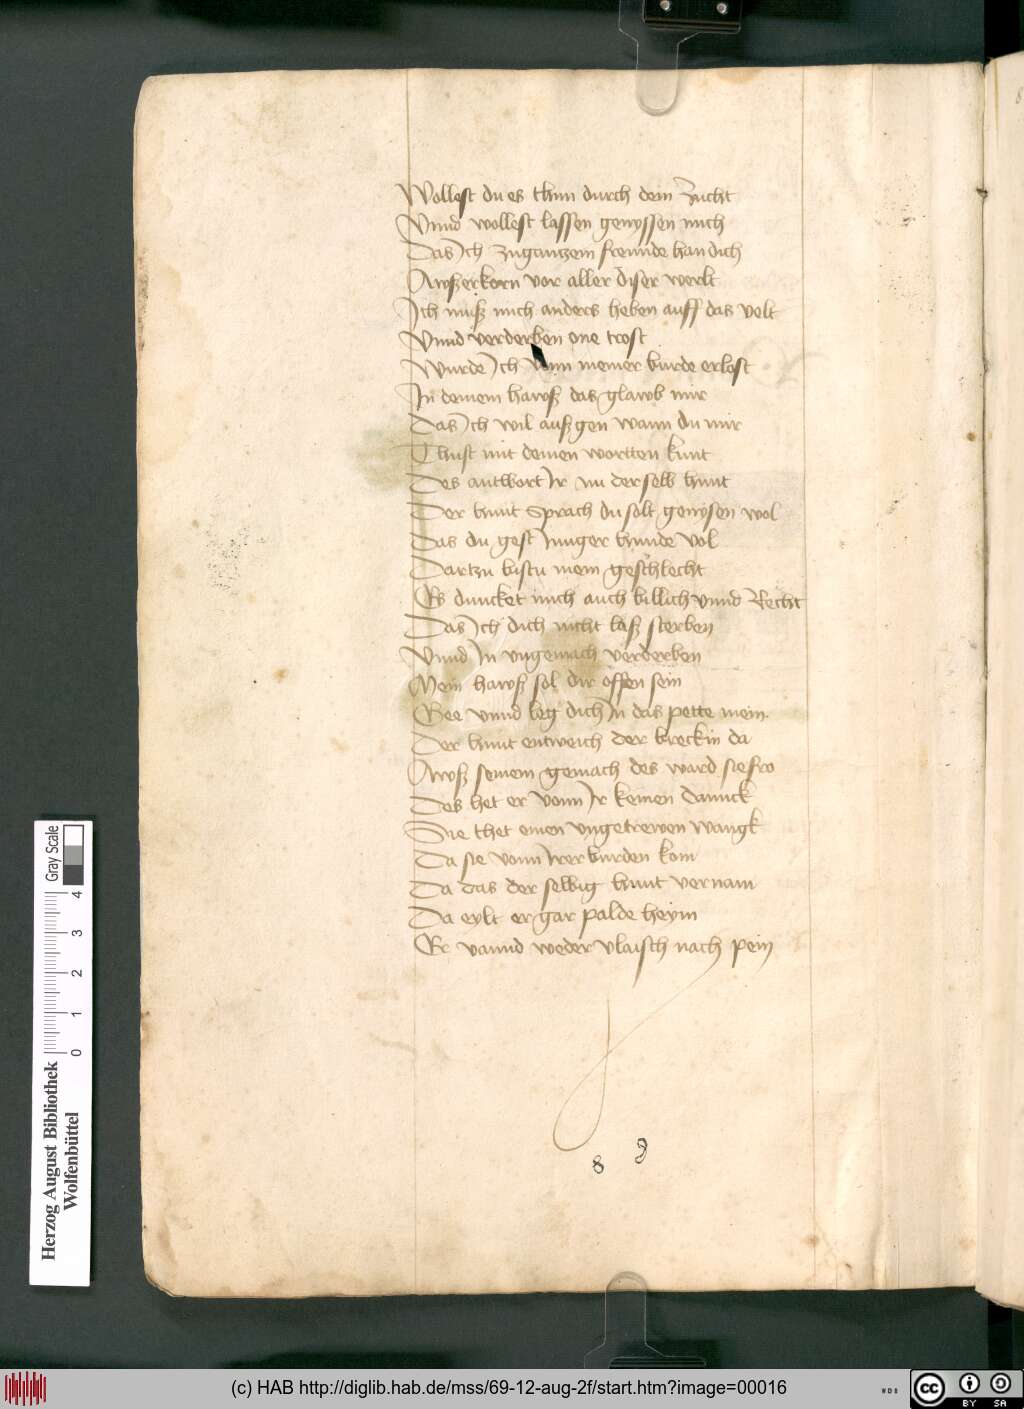 Wollest du es thun durch dein Zucht
Vnnd wollest lassen genyssen mich
Das Ich zugantzem freunde han dich
Awßerkorn vor aller diser werlt
Ich muß mich anders heben auff das velt
Vnnd verderben one trost
Wurde Ich von meiner burde erlost
In deinem hawß das glawb mir
Das Ich wil außgen wann du mir
Thust mit deinen wortten kunt
Des antwort Ir nu derselb hunt
Der hunt Sprach du solt genysen wol
Das du gest Junger hunde vol
Dartzu bistu mein geschlecht
Es duncket mich auch billich vnnd Recht
Das Ich dich nicht laß sterben
Vnnd In vngemach verderben
Mein hawß sol dir offen sein
Gee vnnd leg dich In das pette mein
Der hunt entweich der breckin da
Awß seinem gemach des ward sie fro
Des het er vonn Ir keinen dannck
Sie thet einen vngetrewen wangk
Da sie vonn Irer burden kom
Da das der selbig hunt vernam
Da eylt er gar palde heym
Er vannd weder vlaisch nach pein
8 8
Herzog August Bibliothek
Wolfenbüttel
0 1 2 3 4
Gray Scale
(c) HAB http://diglib.hab.de/mss/69-12-aug-2f/start.htm?image=00016
WDB
cc BY SA